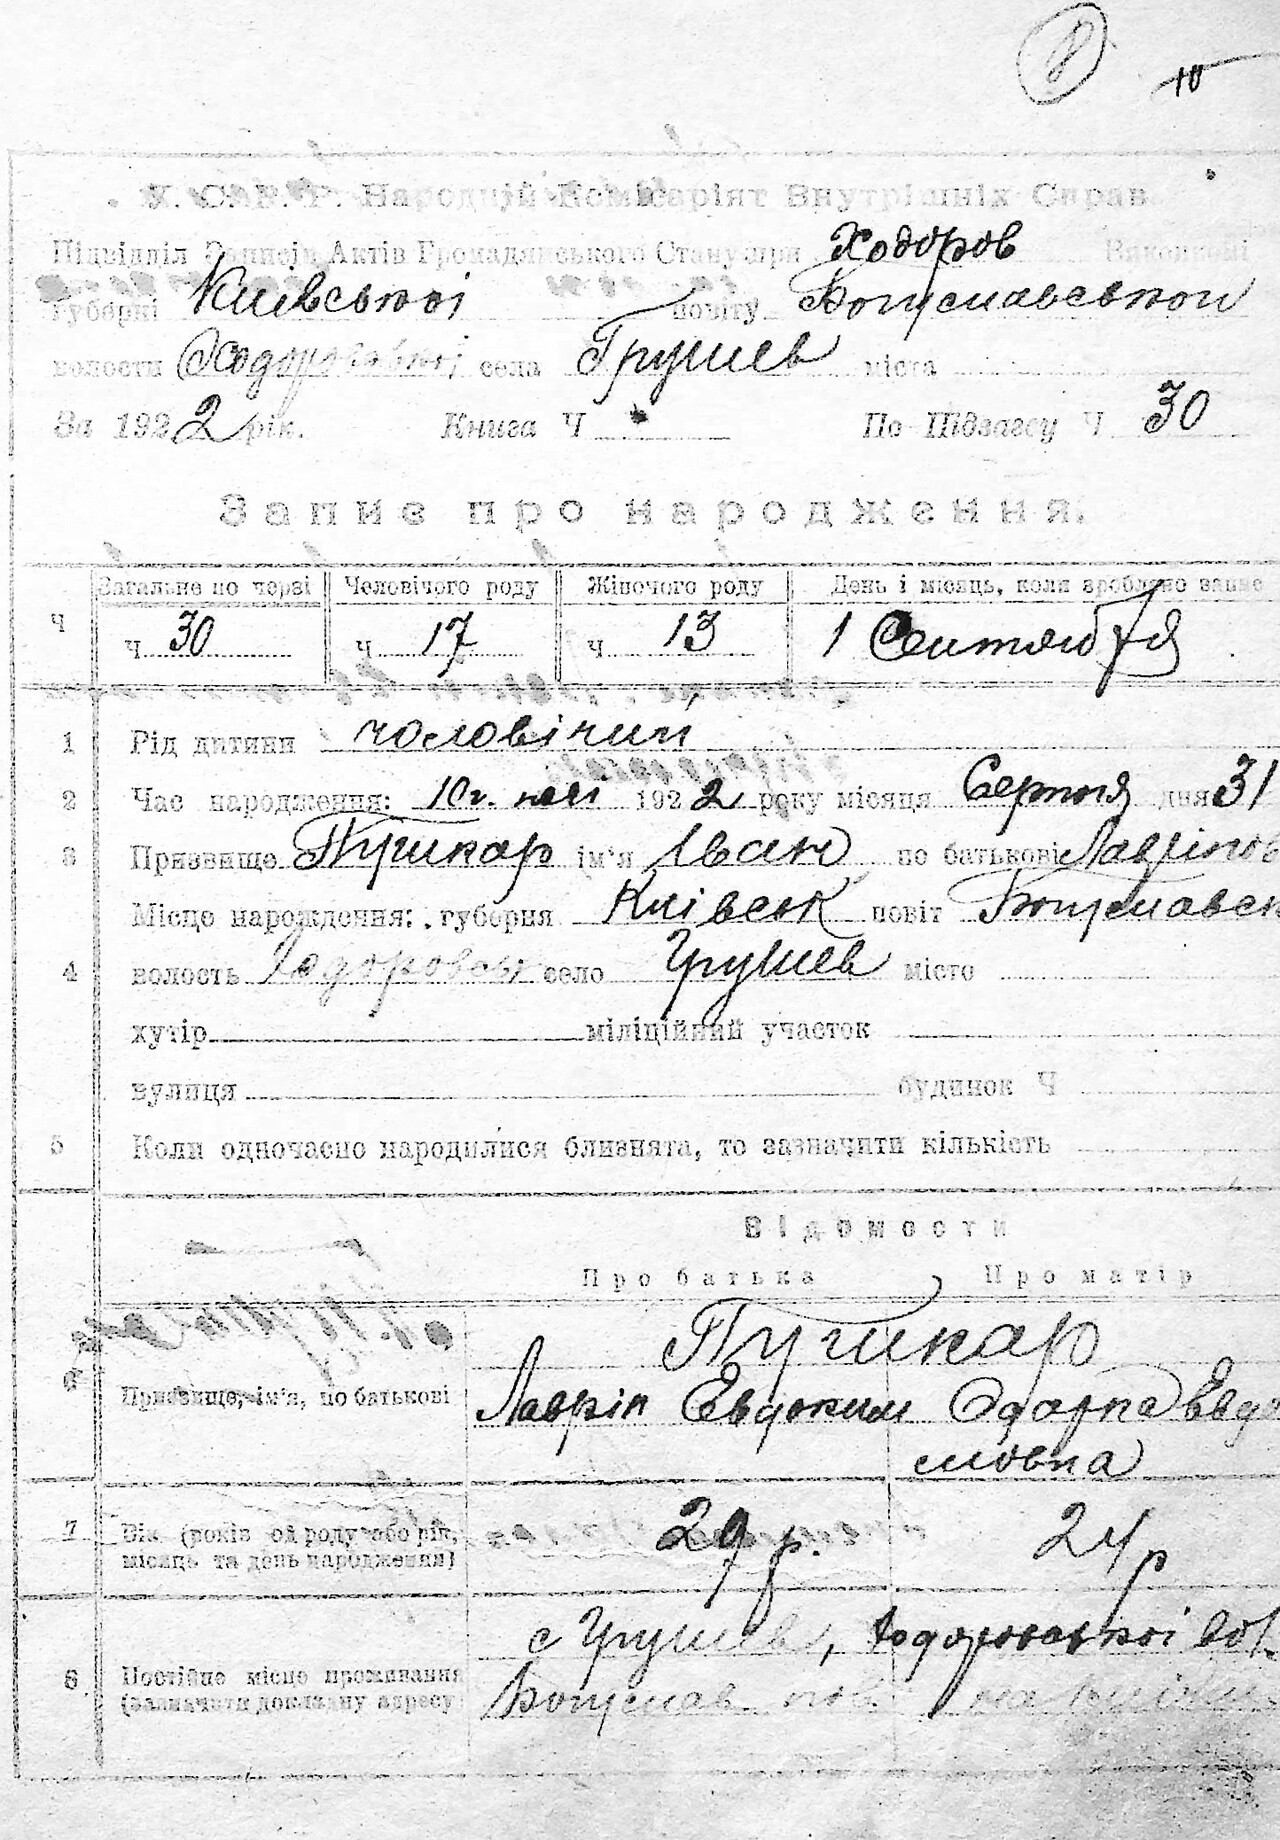 10
У. С. Р. Р. Народній Комісаріят Внутрішніх Справ
Підвідділ Записів Актів Громадянського Стану при Ходоров Виконкомі
губерні Київської повіту Богуславської
волости Ходоровської села Грушев міста
За 1922 рік. Книга Ч По Підзагсу Ч 30
Запис про народження.
Ч Загальне по черзі Человічого роду Жіночого роду День і місяць, коли зроблено запис
ч 30 ч 17 ч 13 1 Сентября
1 Рід дитини чоловічий
2 Час народження: 10 г. 1922 року місяця Серпня дня 31
3 Призвище Пушкар ім'я Іван по батькові Лаврінов
Місце нарождення: губерня Київськ повіт Богуславськ
4 волость Ходоровськ село Грушев місто
хутір міліційний участок
вулиця будинок Ч
5 Коли одночасно народилися близнята, то зазначити кількість
Відомости
Про батька Про матір
Пушкар
6 Призвище, ім'я, по батькові Лаврін Евдоким Одарка Евдо
мовна
7 Вік (років од роду або рік, 29 р. 24 р
місяць та день народження)
с Грушев, Ходоровської вол.
8 Постійне місце проживання
(зазначити докладну адресу Богуслав. пов.